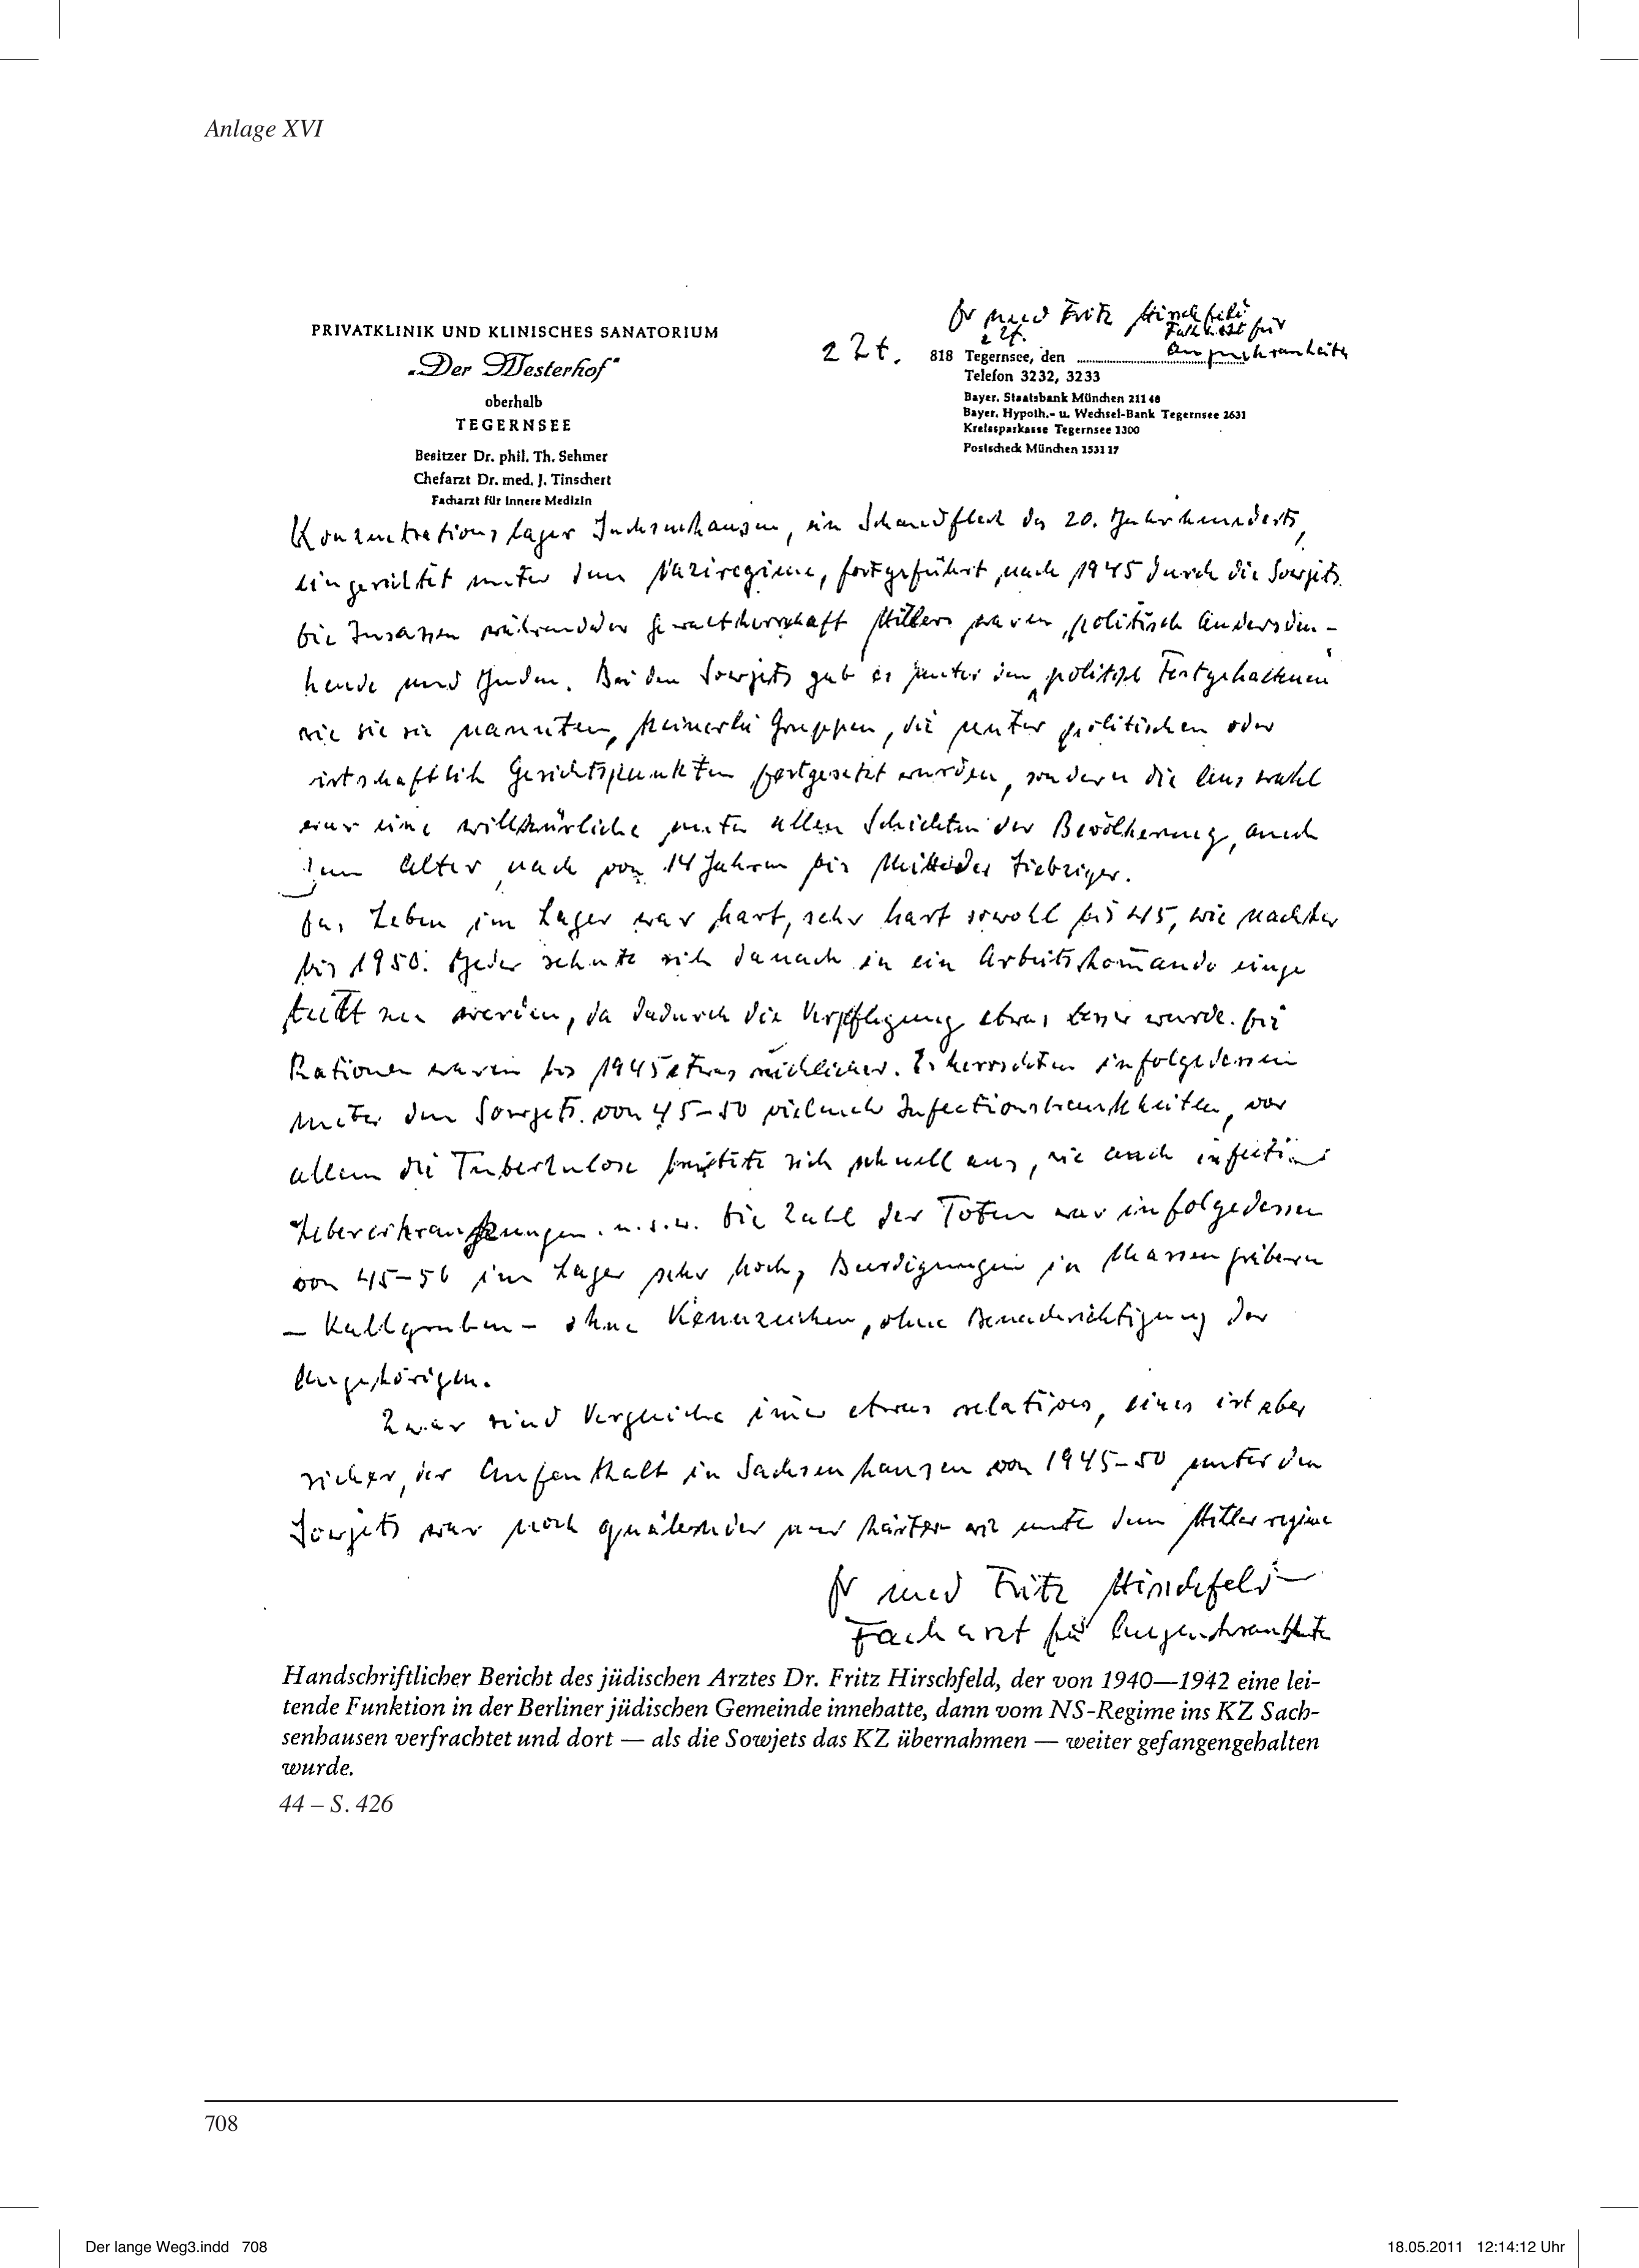 Anlage XVI
PRIVATKLINIK UND KLINISCHES SANATORIUM
„Der Westerhof“
oberhalb
TEGERNSEE
Besitzer Dr. phil. Th. Sehmer
Chefarzt Dr. med. J. Tinschert
Facharzt für Innere Medizin
Dr med Fritz Hirschfeld
Facharzt für
z Zt.
Augenkrankheiten
z Zt. 818 Tegernsee, den
Telefon 3232, 3233
Bayer. Staatsbank München 211 48
Bayer. Hypoth.- u. Wechsel-Bank Tegernsee 2631
Kreissparkasse Tegernsee 1300
Postscheck München 1531 17
Konzentrationslager Sachsenhausen, ein Schandfleck des 20. Jahrhunderts,
eingerichtet unter dem Naziregime, fortgeführt nach 1945 durch die Sowjets.
Die Insassen während der Gewaltherrschaft Hitlers waren politisch Andersden-
kende und Juden. Bei den Sowjets gab es unter den politisch Festgehaltenen
wie sie sie nannten, keinerlei Gruppen, die unter politischen oder
wirtschaftlich Gesichtspunkten festgesetzt wurden, sondern die Auswahl
war eine willkürliche unter allen Schichten der Bevölkerung, auch
dem Alter nach von 14 Jahren bis Mitte der Siebziger.
Das Leben im Lager war hart, sehr hart sowohl bis 45, wie nachher
bis 1950. Jeder sehnte sich danach in ein Arbeitskomando einge
stellt zu werden, da dadurch die Verpflegung etwas besser wurde. Die
Rationen waren bis 1945 etwas reichlicher. Es herrschten infolgedessen
unter den Sowjets von 45-50 vielmehr Infectionskrankheiten, vor
allem die Tuberkulose breitete sich schnell aus, wie auch infectiöse
Lebererkrankungen u.s.w. Die Zahl der Toten war infolgedessen
von 45-50 im Lager sehr hoch, Beerdigungen in Massengräbern
– Kallgruben – ohne Kennzeichen, ohne Benachrichtigung der
Angehörigen.
Zwar sind Vergleiche imer etwas relatives, eines ist aber
sicher, der Aufenthalt in Sachsenhausen von 1945-50 unter den
Sowjets war noch quälender und härter wie unter dem Hitlerregime
Dr med Fritz Hirschfeld
Facharzt für Augenkrankheiten
Handschriftlicher Bericht des jüdischen Arztes Dr. Fritz Hirschfeld, der von 1940—1942 eine lei-
tende Funktion in der Berliner jüdischen Gemeinde innehatte, dann vom NS-Regime ins KZ Sach-
senhausen verfrachtet und dort — als die Sowjets das KZ übernahmen — weiter gefangengehalten
wurde.
44 – S. 426
708
Der lange Weg3.indd 708
18.05.2011 12:14:12 Uhr